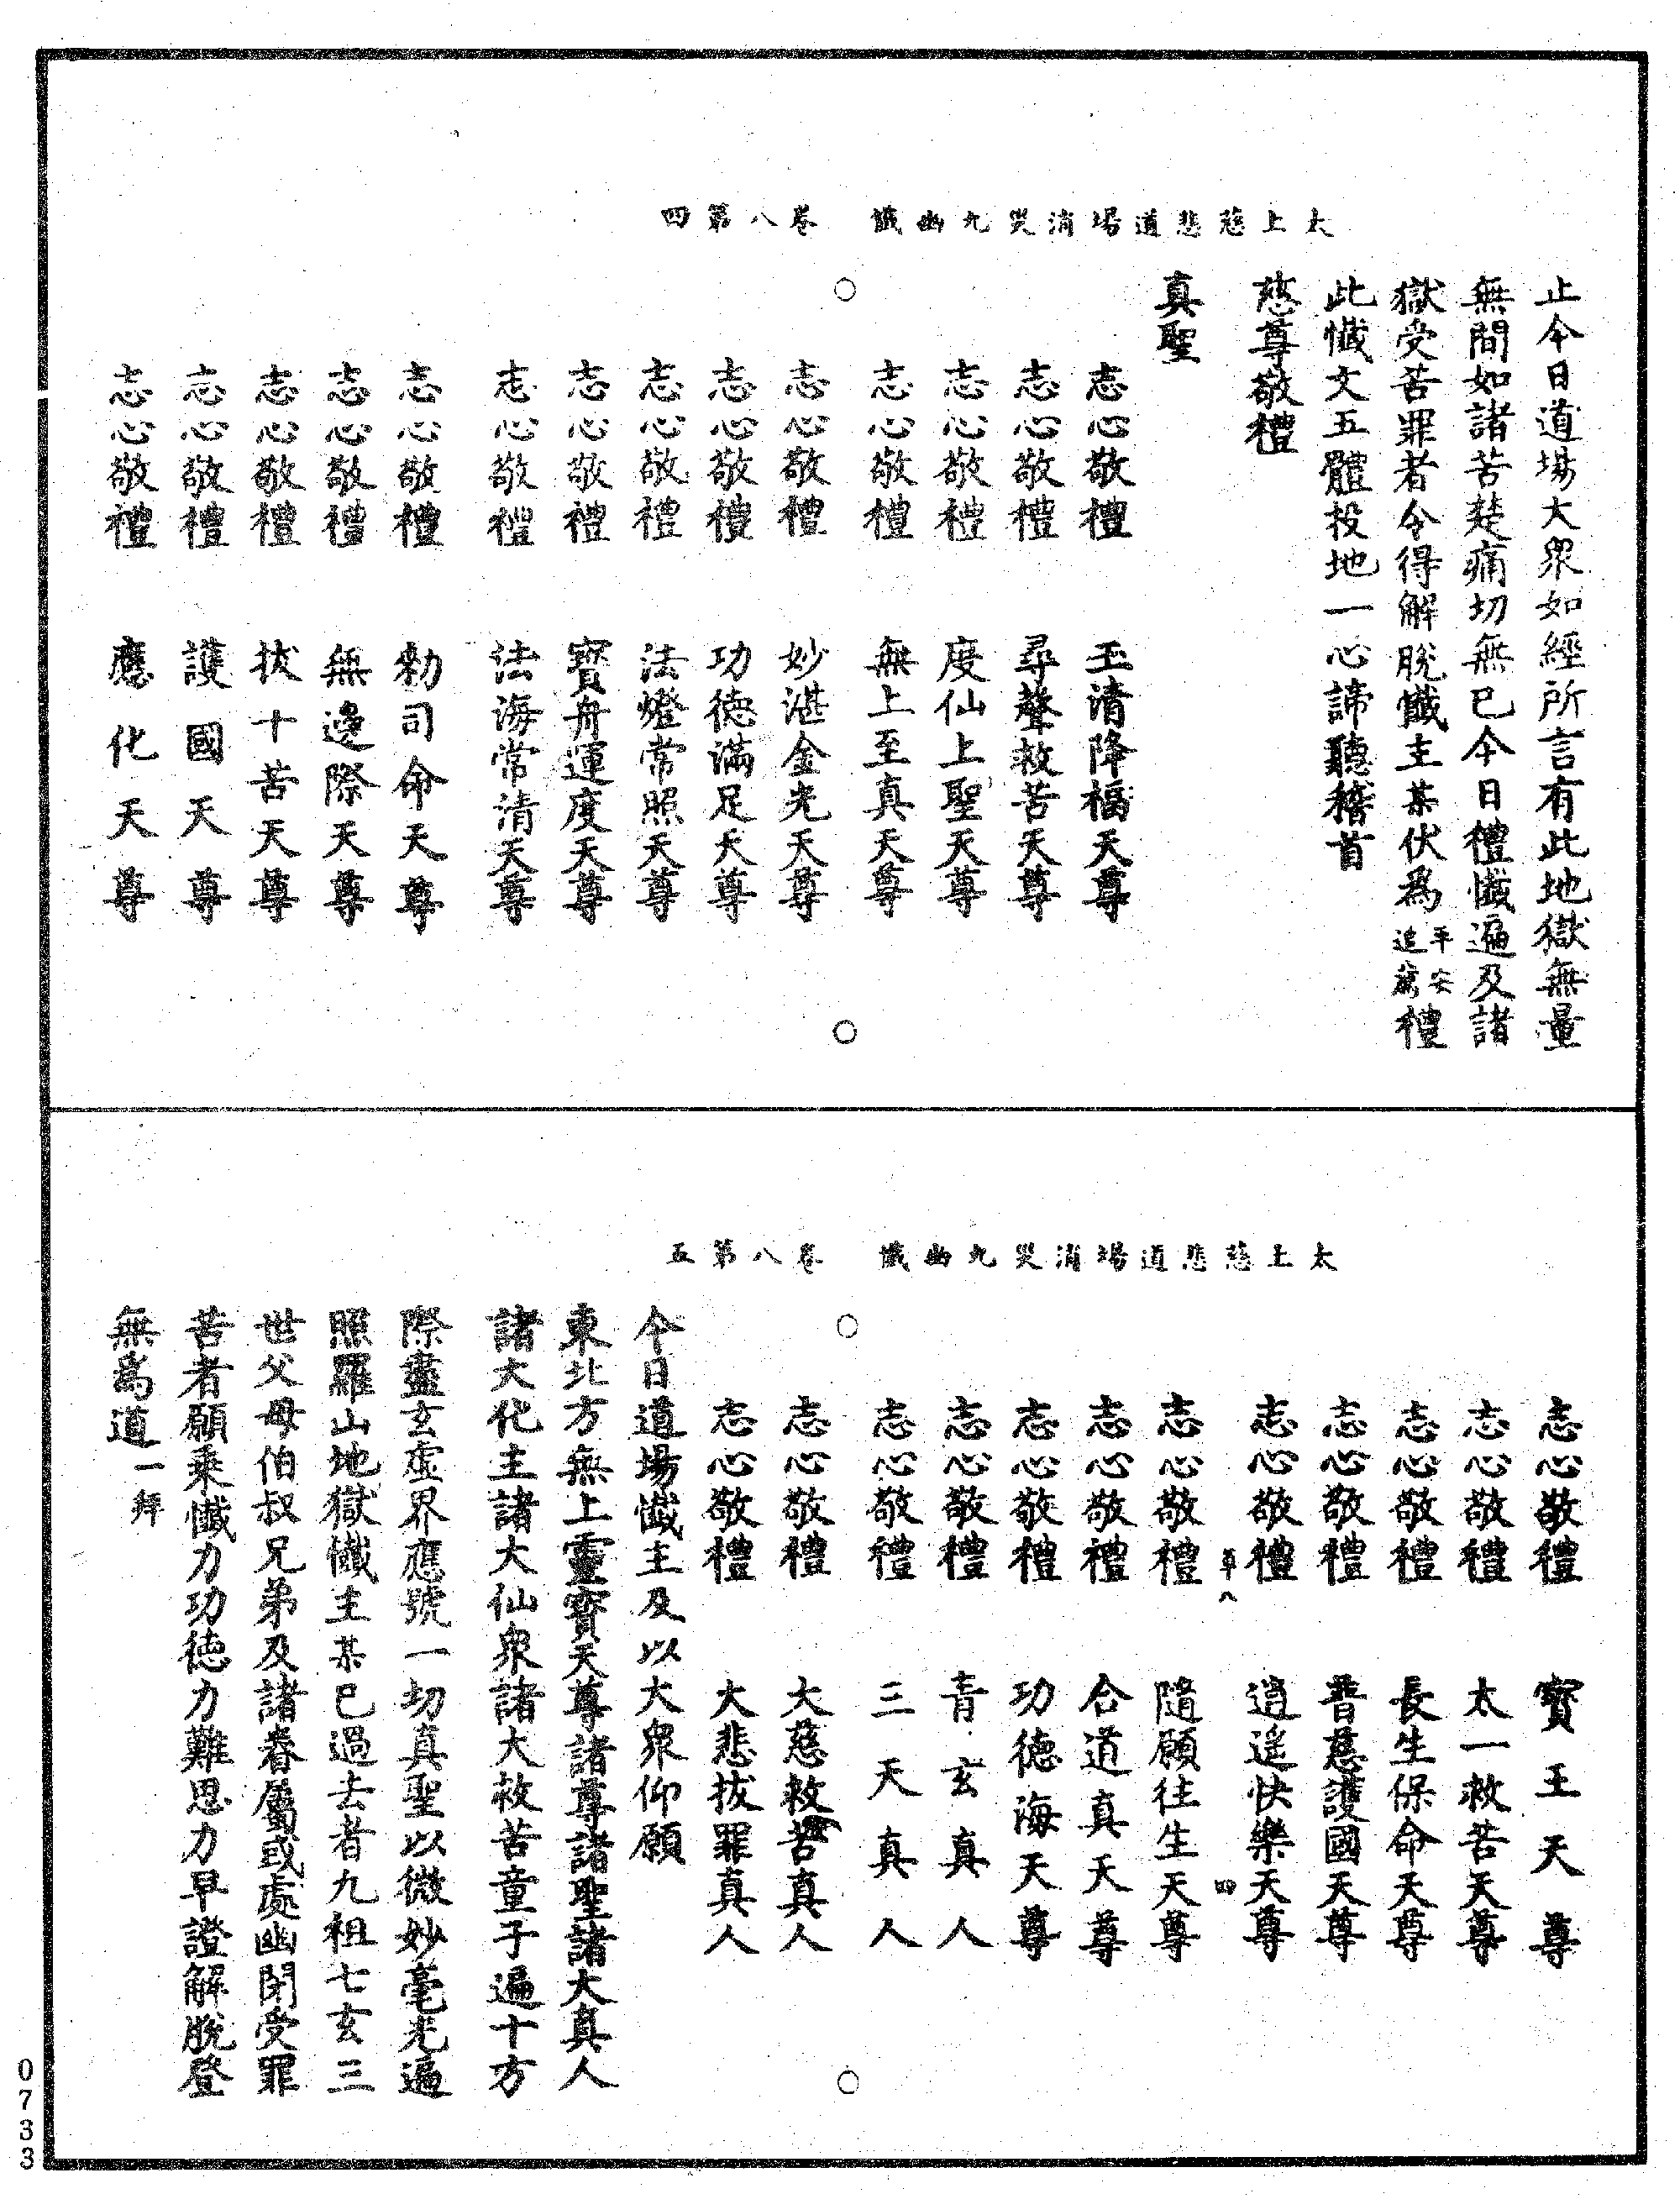 太上慈悲道場消災九幽懺　卷八第四
止今日道場大衆如經所言有此地獄無量
無間如諸苦楚痛切無已今日禮懺遍及諸
獄受苦罪者令得解脫懺主某伏爲平安追薦禮
此懺文五體投地一心諦聽稽首
慈尊敬禮
真聖
志心敬禮　玉清降福天尊
志心敬禮　尋聲救苦天尊
志心敬禮　度仙上聖天尊
志心敬禮　無上至真天尊
志心敬禮　妙湛金光天尊
志心敬禮　功德滿足天尊
志心敬禮　法燈常照天尊
志心敬禮　寶舟運度天尊
志心敬禮　法海常清天尊
志心敬禮　勑司命天尊
志心敬禮　無邊際天尊
志心敬禮　拔十苦天尊
志心敬禮　護國天尊
志心敬禮　應化天尊
太上慈悲道場消災九幽懺　卷八第五
志心敬禮　寶王天尊
志心敬禮　太一救苦天尊
志心敬禮　長生保命天尊
志心敬禮　普慈護國天尊
志心敬禮　逍遙快樂天尊
草八　四
志心敬禮　隨願往生天尊
志心敬禮　合道真天尊
志心敬禮　功德海天尊
志心敬禮　青玄真人
志心敬禮　三天真人
志心敬禮　大慈救苦真人
志心敬禮　大悲拔罪真人
今日道場懺主及以大衆仰願
東北方無上靈寶天尊諸尊諸聖諸大真人
諸大化主諸大仙衆諸大救苦童子遍十方
際盡玄虛界應號一切真聖以微妙毫光遍
照羅山地獄懺主某已過去者九祖七玄三
世父母伯叔兄弟及諸眷屬或處幽閉受罪
苦者願乘懺力功德力難思力早證解脫登
無爲道一拜
0733